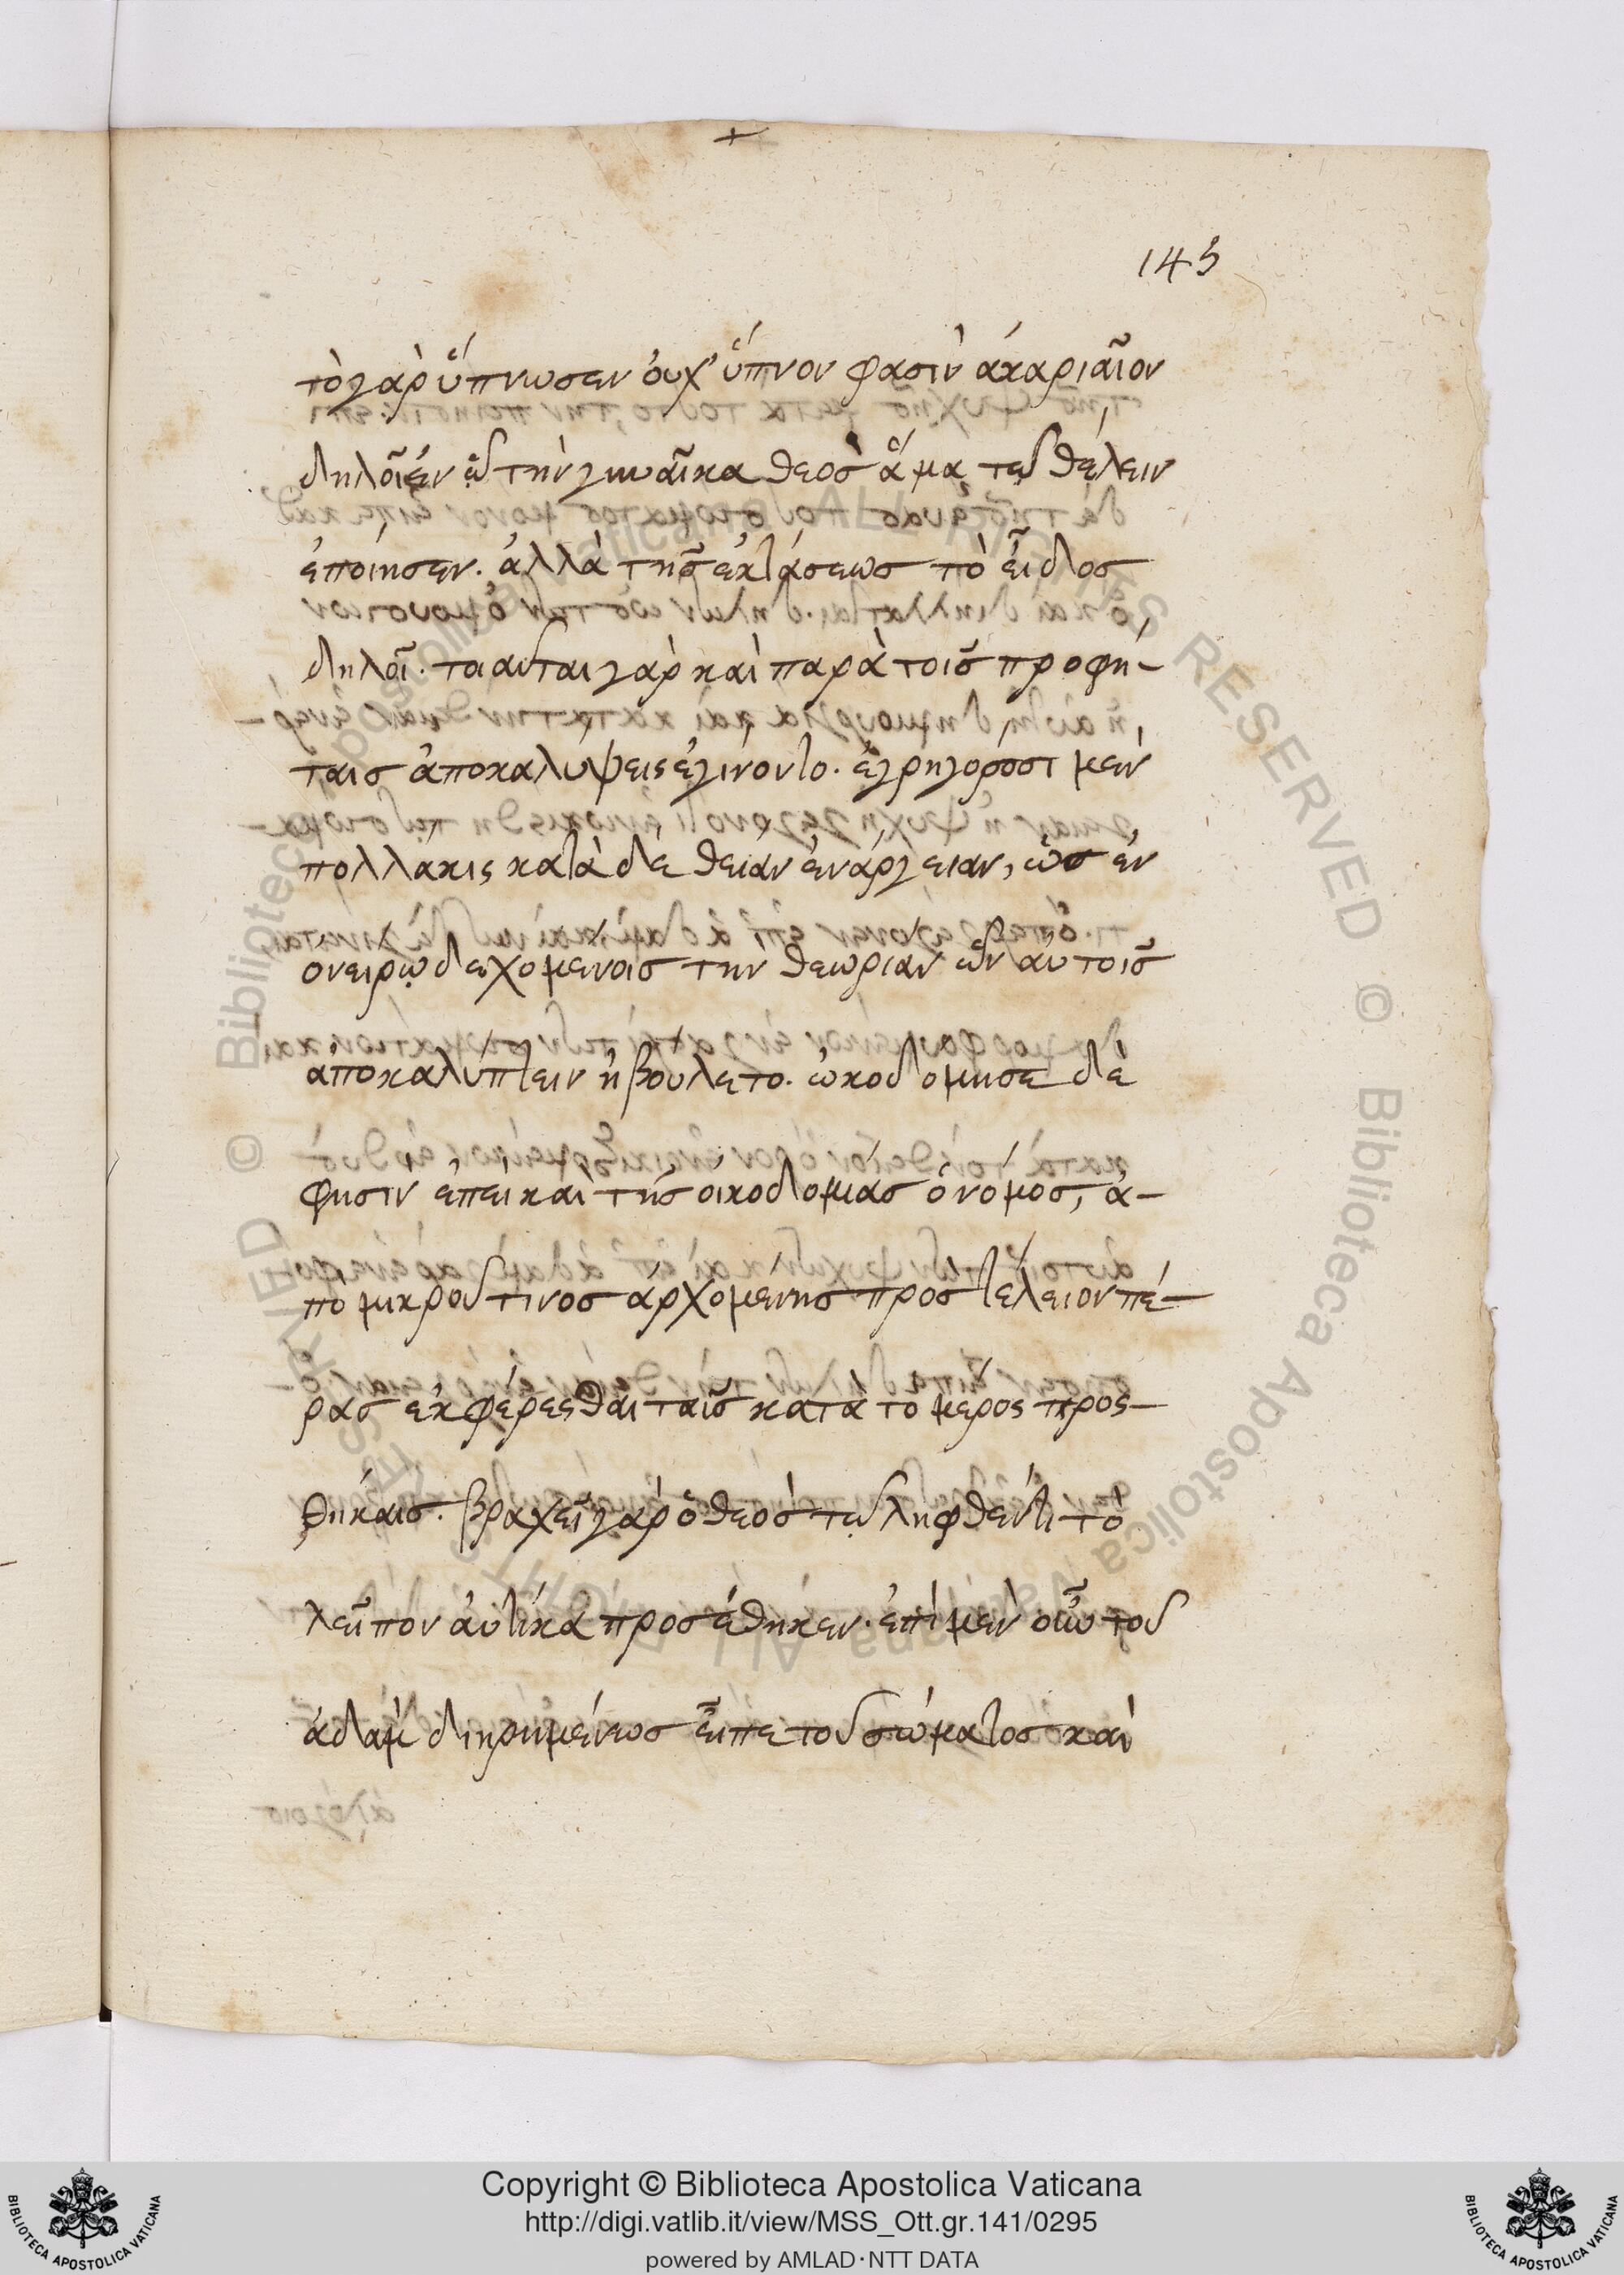 145
τὸ γὰρ ὕπνωσεν ὀυχ' ὕπνον φασὶν ἀκαριᾶιον
δηλοῖ ἐν ᾧ τὴν γυναῖκα θεὸσ ἅμα τῷ θέλειν
ἐποίησεν. ἀλλὰ τῆσ ἐκστάσεωσ τὸ εἶδος
δηλοῖ. τοιαῦται γὰρ καὶ παρὰ τοῖσ προφή-
ταισ ἀποκαλύψεις ἐγίνοντο. ἐγρηγορόσι μεν
πολλάκις κατὰ δε θείαν ἐνάργειαν, ὡσ ἐν
ονείρῳ δεχομένοισ την θεωρίαν ὧν αὐτοῖσ
ἀποκαλύπτειν ἠβούλετο. ὠκοδόμησε δὲ
φησιν ἐπεὶ καὶ τῆσ οικοδομίασ ὁ νόμοσ, ἀ-
πὸ μικροῦ τινοσ ἀρχομένησ προσ τέλειον πέ-
ρασ ἐκφέρεσθαι ταῖσ κατὰ το μέρος προς-
θήκαισ. βραχεῖ γὰρ ὁ θεὸσ τῷ ληφθέντι τὸ
λεῖπον ἀυτίκα προσέθηκεν. ἐπὶ μὲν οὖν τοῦ
ἀδὰμ διῃρημένωσ εἶπε τοῦ σώματοσ καὶ
Copyright © Biblioteca Apostolica Vaticana
http://digi.vatlib.it/view/MSS_Ott.gr.141/0295
powered by AMLAD·NTT DATA
BIBLIOTECA APOSTOLICA VATICANA
BIBLIOTECA APOSTOLICA VATICANA